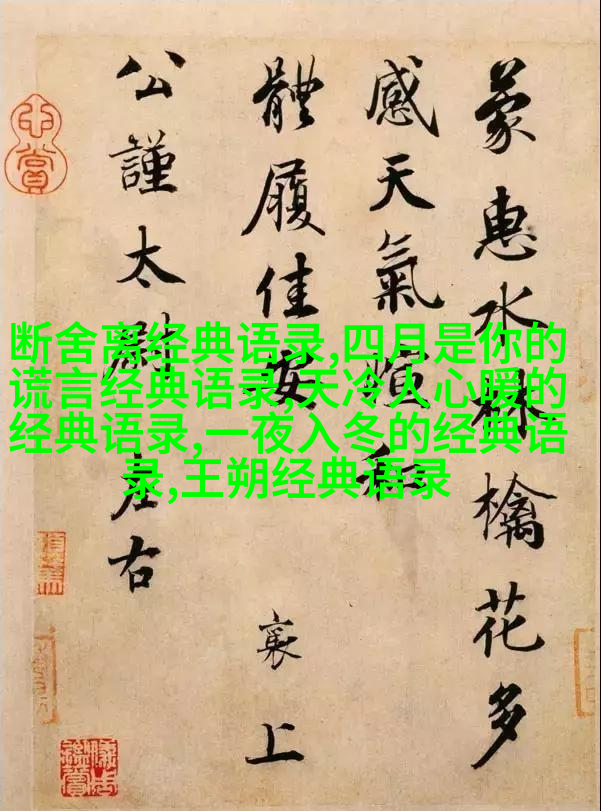 蒙惠水林檎花多
感天氣暄和
體履佳安
襄上
公謹太尉左右
断舍离经典语录,四月是你的
谎言经典语录,天冷人心暖的
经典语录,一夜入冬的经典语
录,王朔经典语录